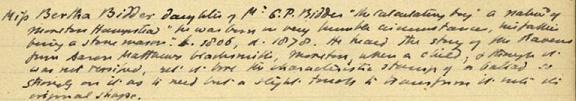 Miss Bertha Bidder daughter of Mr G.P. Bidder "the calculating boy" a native of
Moreton Hampstead he was born in very humble circumstances, his father
being a stone mason. b. 1806, d. 1878. He heard the story of the
from Aaron Matthews blacksmith, Moreton, when a child, & though it
was not versified, yet it bore the characteristic stamp of a ballad so
strongly on it as to need but a slight touch to transform it into its
original shape.